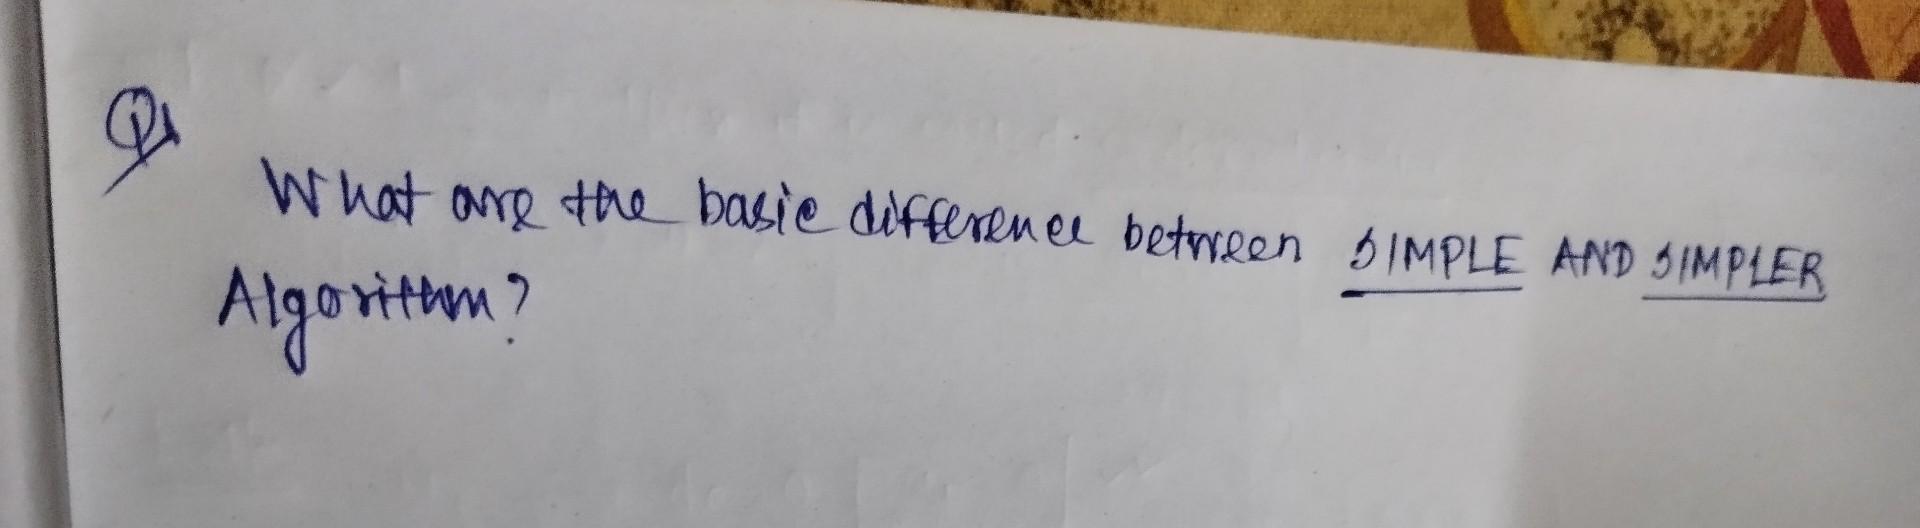 Q1
What are the basic difference between SIMPLE AND SIMPLER
Algorithm?